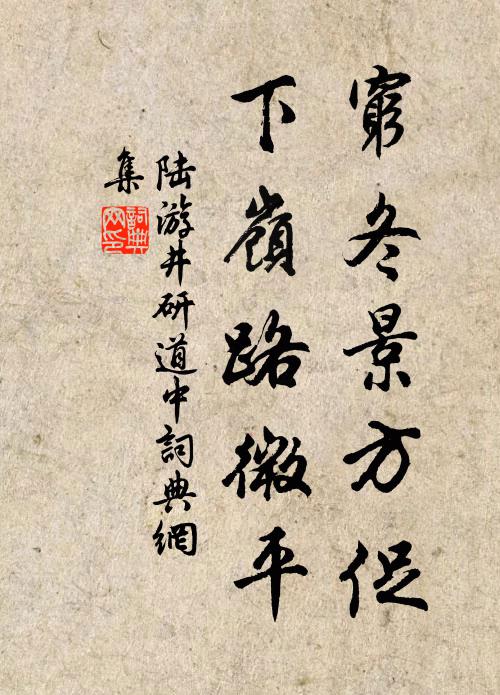 窮冬景方促
下嶺路微平
陆游井研道中詞典網
集
詞典
网印